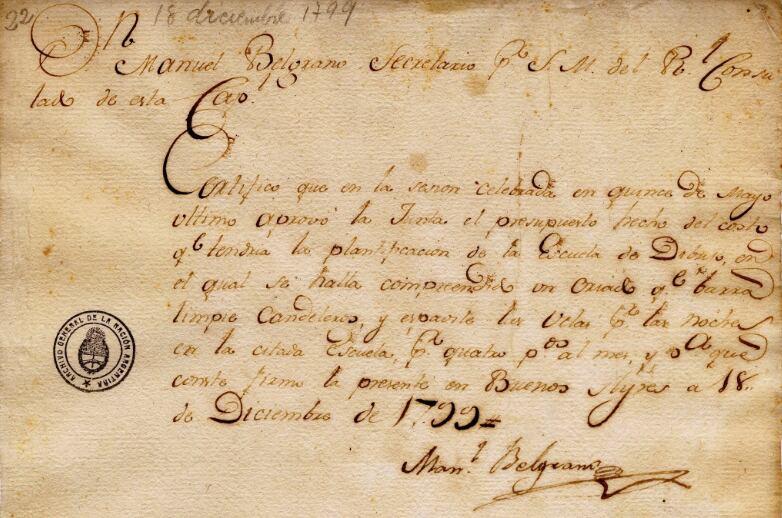 22
18 diciembre 1799
Dn
Manuel Belgrano Secretario pr S. M. del Rl Consu
lado de esta Capl
Certifico que en la sesion celebrada en quince de Mayo
ultimo aprovó la Junta el presupuesto hecho del costo
qe tendria la plantificacion de la Escuela de Dibujo, en
el qual se halla compreendido un Criado qe barra
limpie Candeleros, y espavile las velas pr las noches
en la citada Escuela, pr quatro pos al mes, y pa que
conste firmo la presente en Buenos Ayres a 18
de Diciembre de 1799
Manl Belgrano
ARCHIVO GENERAL DE LA NACIÓN ARGENTINA